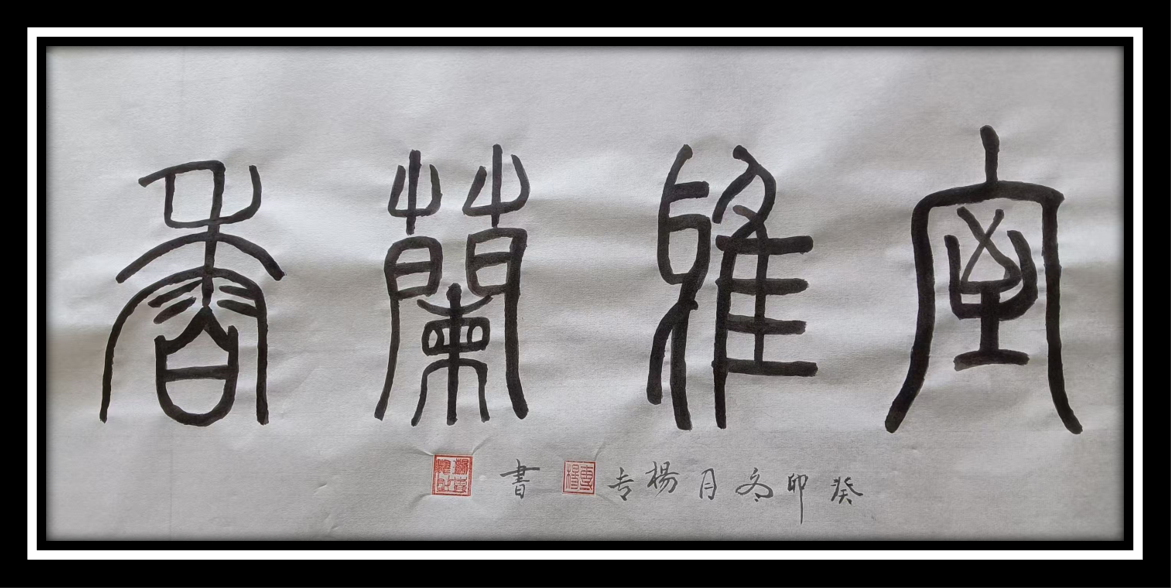 室雅蘭香
癸卯冬月楊吉書